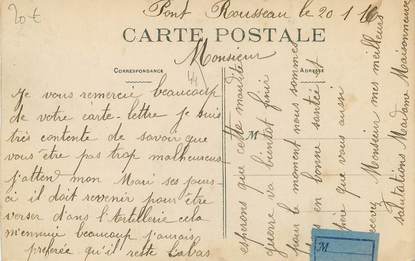 20€
Pont Rousseau le 20-1-16
CARTE POSTALE
Monsieur
CORRESPONDANCE
ADRESSE
Je vous remercie beaucoup
de votre carte-lettre je suis
très contente de savoir que
vous être pas trop malheureux
j'attend mon Mari ses jours-
ci il doit revenir pour être
verser dans l'artellerie cela
m'ennuie beaucoup j'aurais
préférée qu'il reste Labas
esperons que cette maudite
guerre va bientot finir
pour le moment nous sommes
en bonne santée et
que vous aussi
recevez Monsieur mes meilleurs
salutations Madame Maisonneuve
M
M